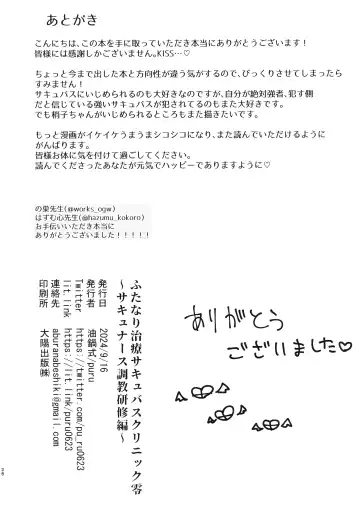 あとがき
こんにちは、この本を手に取っていただき本当にありがとうございます！
皆様には感謝しかございません。KISS…♡
ちょっと今まで出した本と方向性が違う気がするので、びっくりさせてしまったら
すみません！
サキュバスにいじめられるのも大好きなのですが、自分が絶対強者、犯す側
だと信じている強いサキュバスが犯されてるのもまた大好きです。
でも梢子ちゃんがいじめられるところもまた描きたいです。
もっと漫画がイケイケうまうまシコシコになり、また読んでいただけるように
がんばります。
皆様お体に気を付けて過ごしてください。
読んでくださったあなたが元気でハッピーでありますように♡
の蛍先生(@works_ogw)
はずむ心先生(@hazumu_kokoro)
お手伝いいただき本当に
ありがとうございました！！！！！
ふたなり治療サキュバスクリニック零
～サキュナース調教研修編～
発行日 2024/9/16
発行者 油鍋式/puru
Twitter https://twitter.com/pu_ru0623
lit.link https://lit.link/puru0623
連絡先 aburanabeshiki@gmail.com
印刷所 大陽出版㈱
ありがとう
ございました♡
26